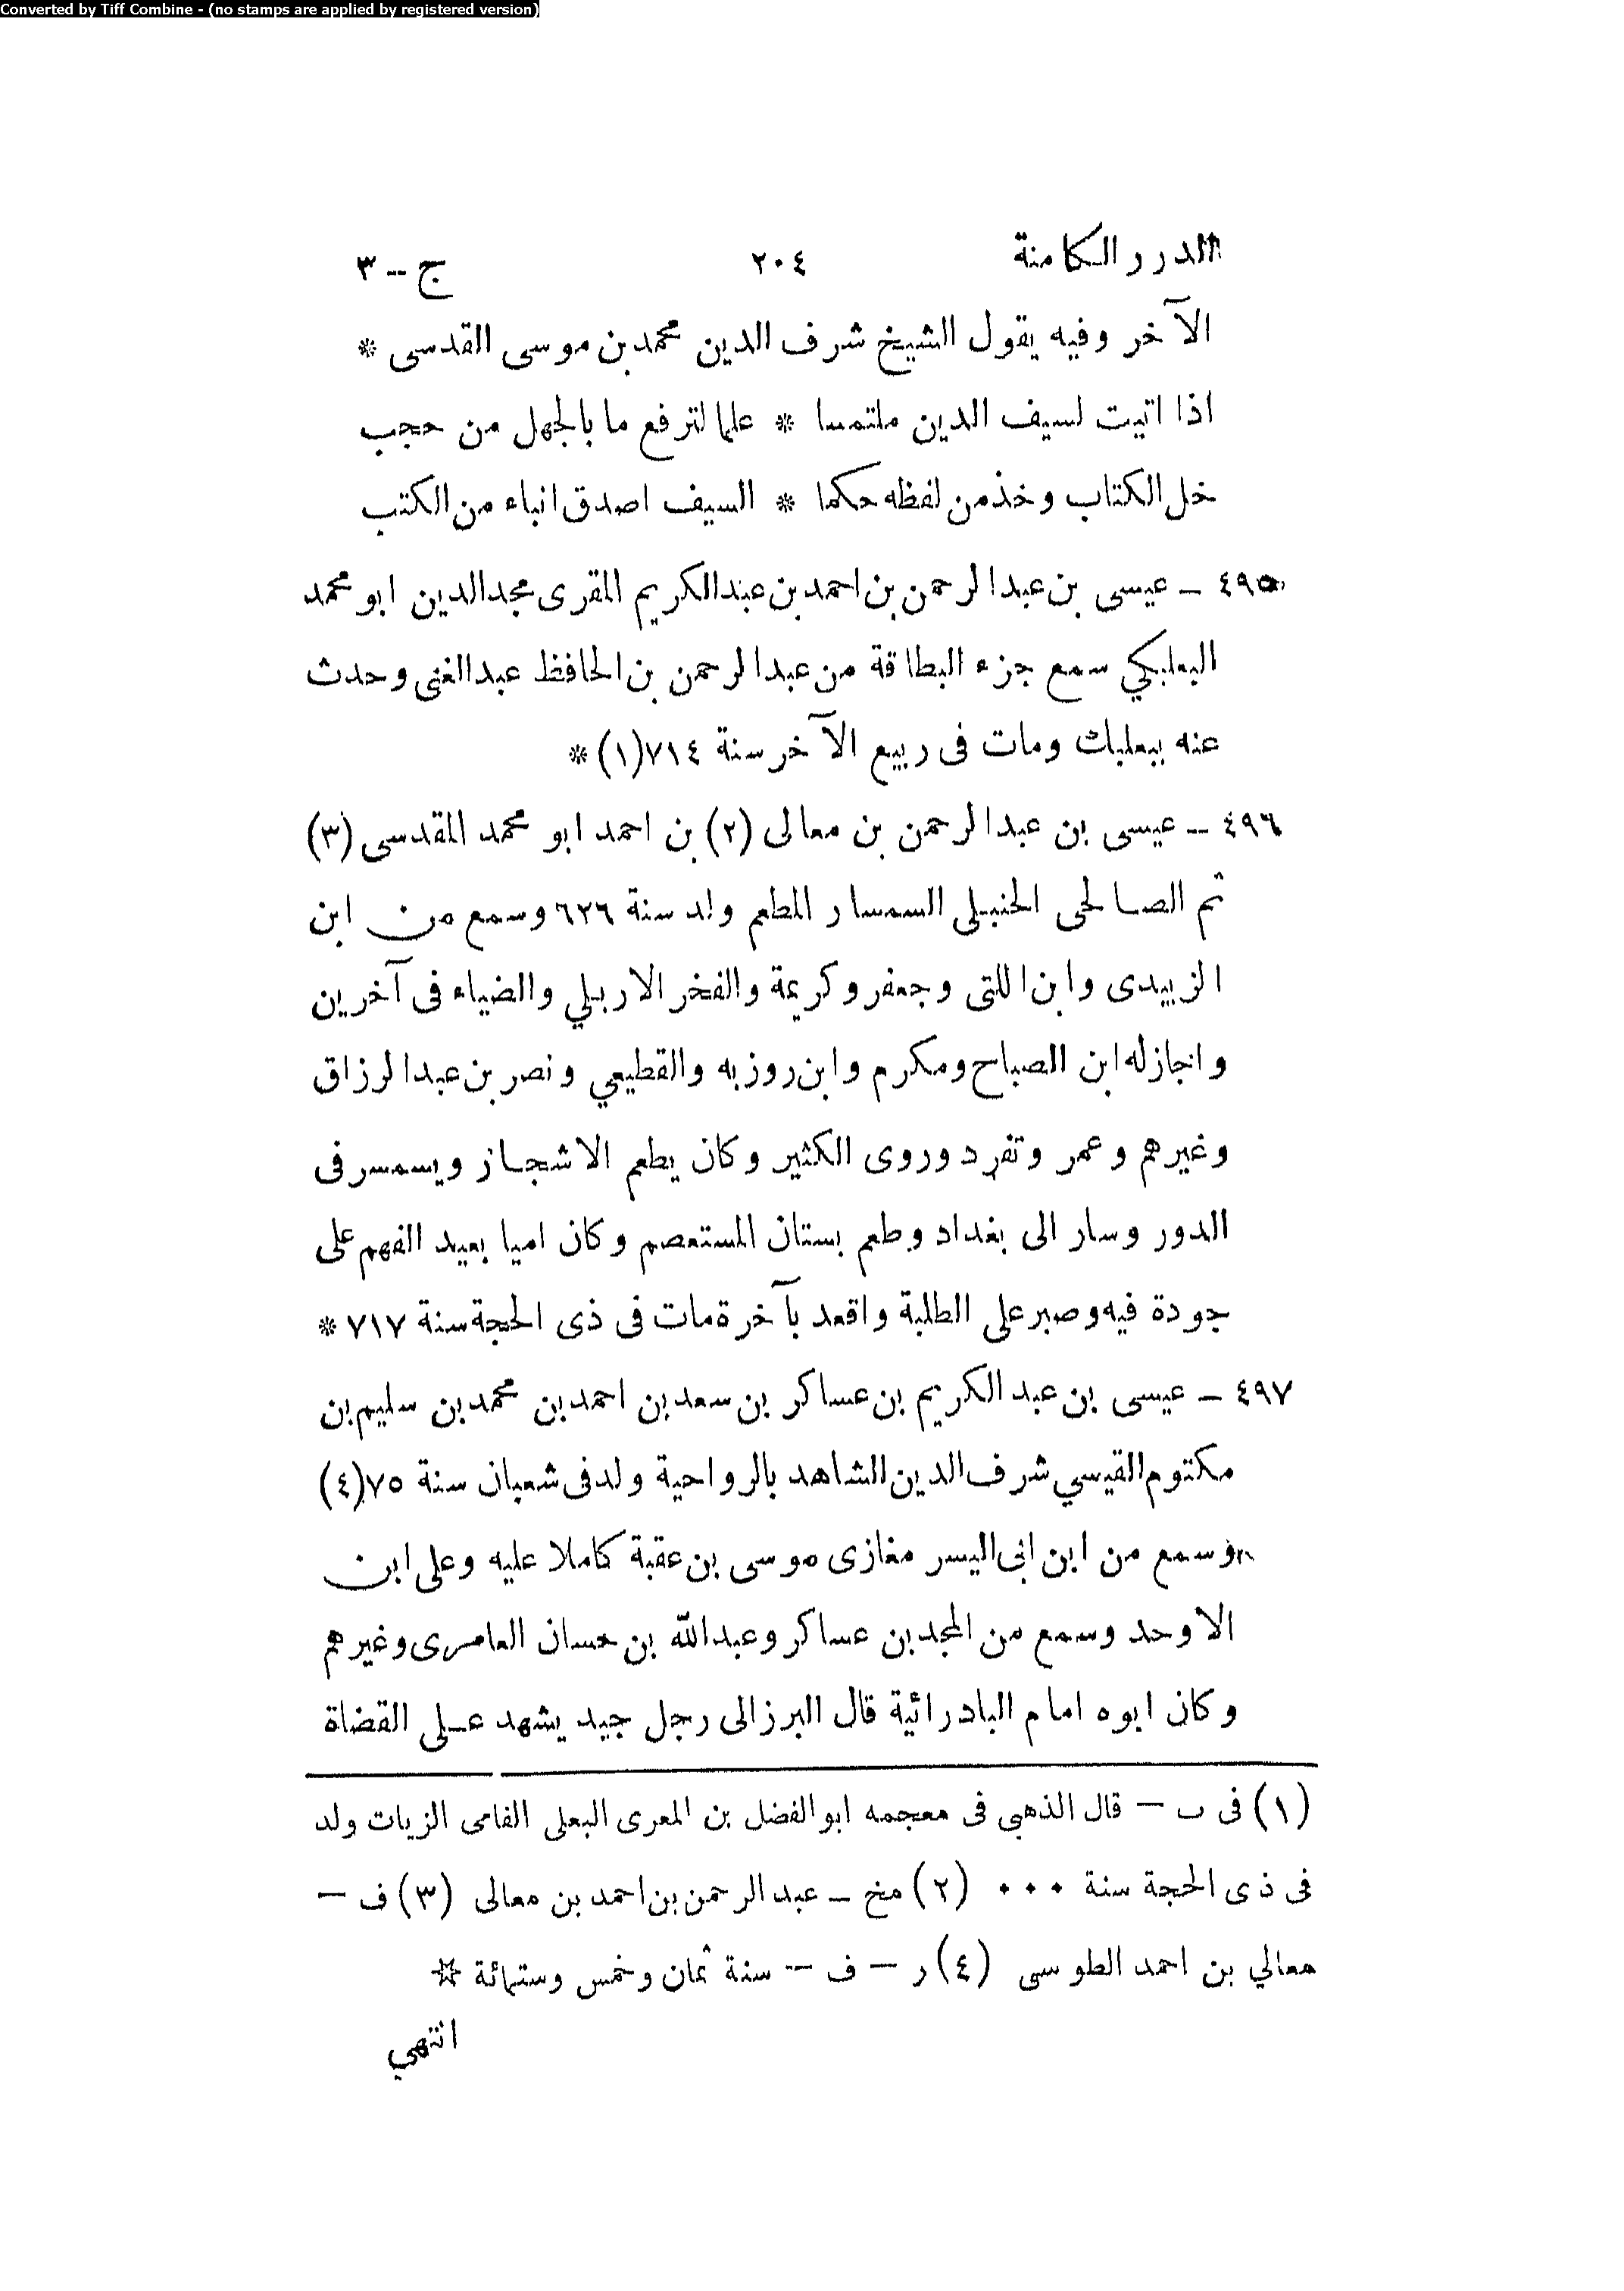 Converted by Tiff Combine - (no stamps are applied by registered version)
الدرر الكامنة ٢٠٤ ج -- ٣
الآخر وفيه يقول الشيخ شرف الدين محمد بن موسى القدسى *
اذا اتيت لسيف الدين ملتمسا * علما لترفع ما بالجهل من حجب
خل الكتاب وخذ من لفظه حكما * السيف اصدق انباء من الكتب
٤٩٥ – عيسى بن عبد الرحمن بن احمد بن عبد الكريم المقرى مجد الدين ابو محمد
البعلبكي سمع جزء البطاقة من عبد الرحمن بن الحافظ عبد الغنى وحدث
عنه ببعلبك ومات فى ربيع الآخر سنة ٧١٤ (١) *
٤٩٦ – عيسى بن عبد الرحمن بن معالى (٢) بن احمد ابو محمد المقدسى (٣)
ثم الصالحى الحنبلى السمسار المطعم ولد سنة ٦٢٦ وسمع من ابن
الزبيدى وابن اللتى وجعفر وكريمة والفخر الاربلي والضياء فى آخرين
واجاز له ابن الصباح ومكرم وابن روزبه والقطيعي ونصر بن عبد الرزاق
وغيرهم وعمر وتفرد وروى الكثير وكان يطعم الاشجار ويسمسر فى
الدور وسار الى بغداد وطعم بستان المستعصم وكان اميا بعيد الفهم على
جودة فيه وصبر على الطلبة واقعد بآخرة مات فى ذى الحجة سنة ٧١٧ *
٤٩٧ – عيسى بن عبد الكريم بن عساكر بن سعد بن احمد بن محمد بن سليم بن
مكتوم القيسي شرف الدين الشاهد بالرواحية ولد فى شعبان سنة ٧٥ (٤)
وسمع من ابن ابى اليسر مغازى موسى بن عقبة كاملا عليه وعلى ابن
الاوحد وسمع من المجد بن عساكر وعبد الله بن حسان العامرى وغيرهم
وكان ابوه امام البادرائية قال البرزالى رجل جيد يشهد على القضاة
(١) فى ب – قال الذهبي فى معجمه ابو الفضل بن المعرى البعلى الفامى الزيات ولد
فى ذى الحجة سنة ٠٠٠ (٢) مخ – عبد الرحمن بن احمد بن معالى (٣) ف –
معالي بن احمد الطوسى (٤) ر – ف -- سنة ثمان وخمس وستمائة ☆
انتهي